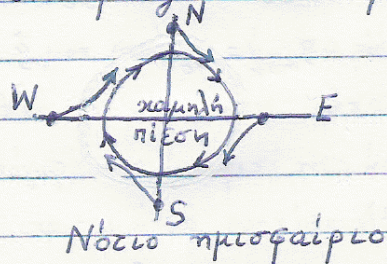 N
W
χαμηλή
E
πίεση
S
Νότιο ημισφαίριο